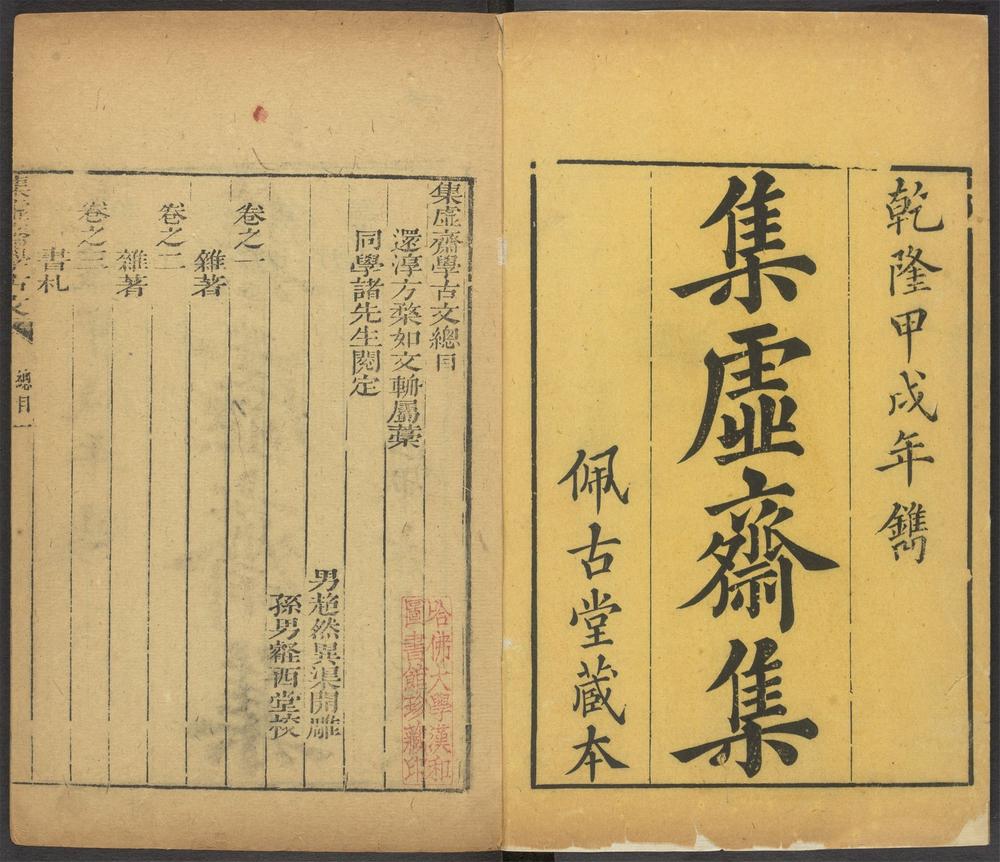 乾隆甲戌年鐫
集虛齋集
佩古堂藏本
集虛齋學古文總目
還淳方楘如文輈屬藁
同學諸先生閱定
男超然異渠開雕
孫男鏗西堂校
卷之一
雜著
卷之二
雜著
卷之三
書札
集虛齋學古文
總目
一
哈佛大學漢和
圖書館珍藏印